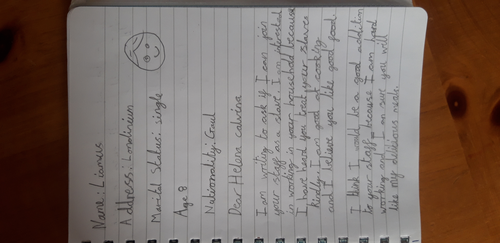 Name: Liamus
Address: Londinium
Marital Status: single
Age 8
Nationality: Gaul
Dear Helena Calvina
I am writing to ask if I can join
your staff as a slave. I am interested
in working in your household because
I have heard you treat your slaves
kindly. I am good at cooking
and I believe you like good food.
I think I would be a good addition
to your staff because I am hard
working and I am sure you will
like my delicious meals.